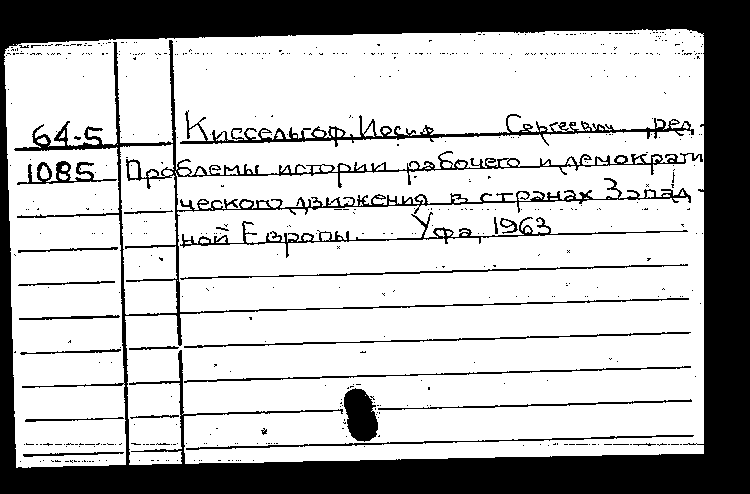 64-5 Киссельгоф, Иосиф Сергеевич, ред.
1085 Проблемы истории рабочего и демократи
ческого движения в странах Запад-
ной Европы. Уфа, 1963